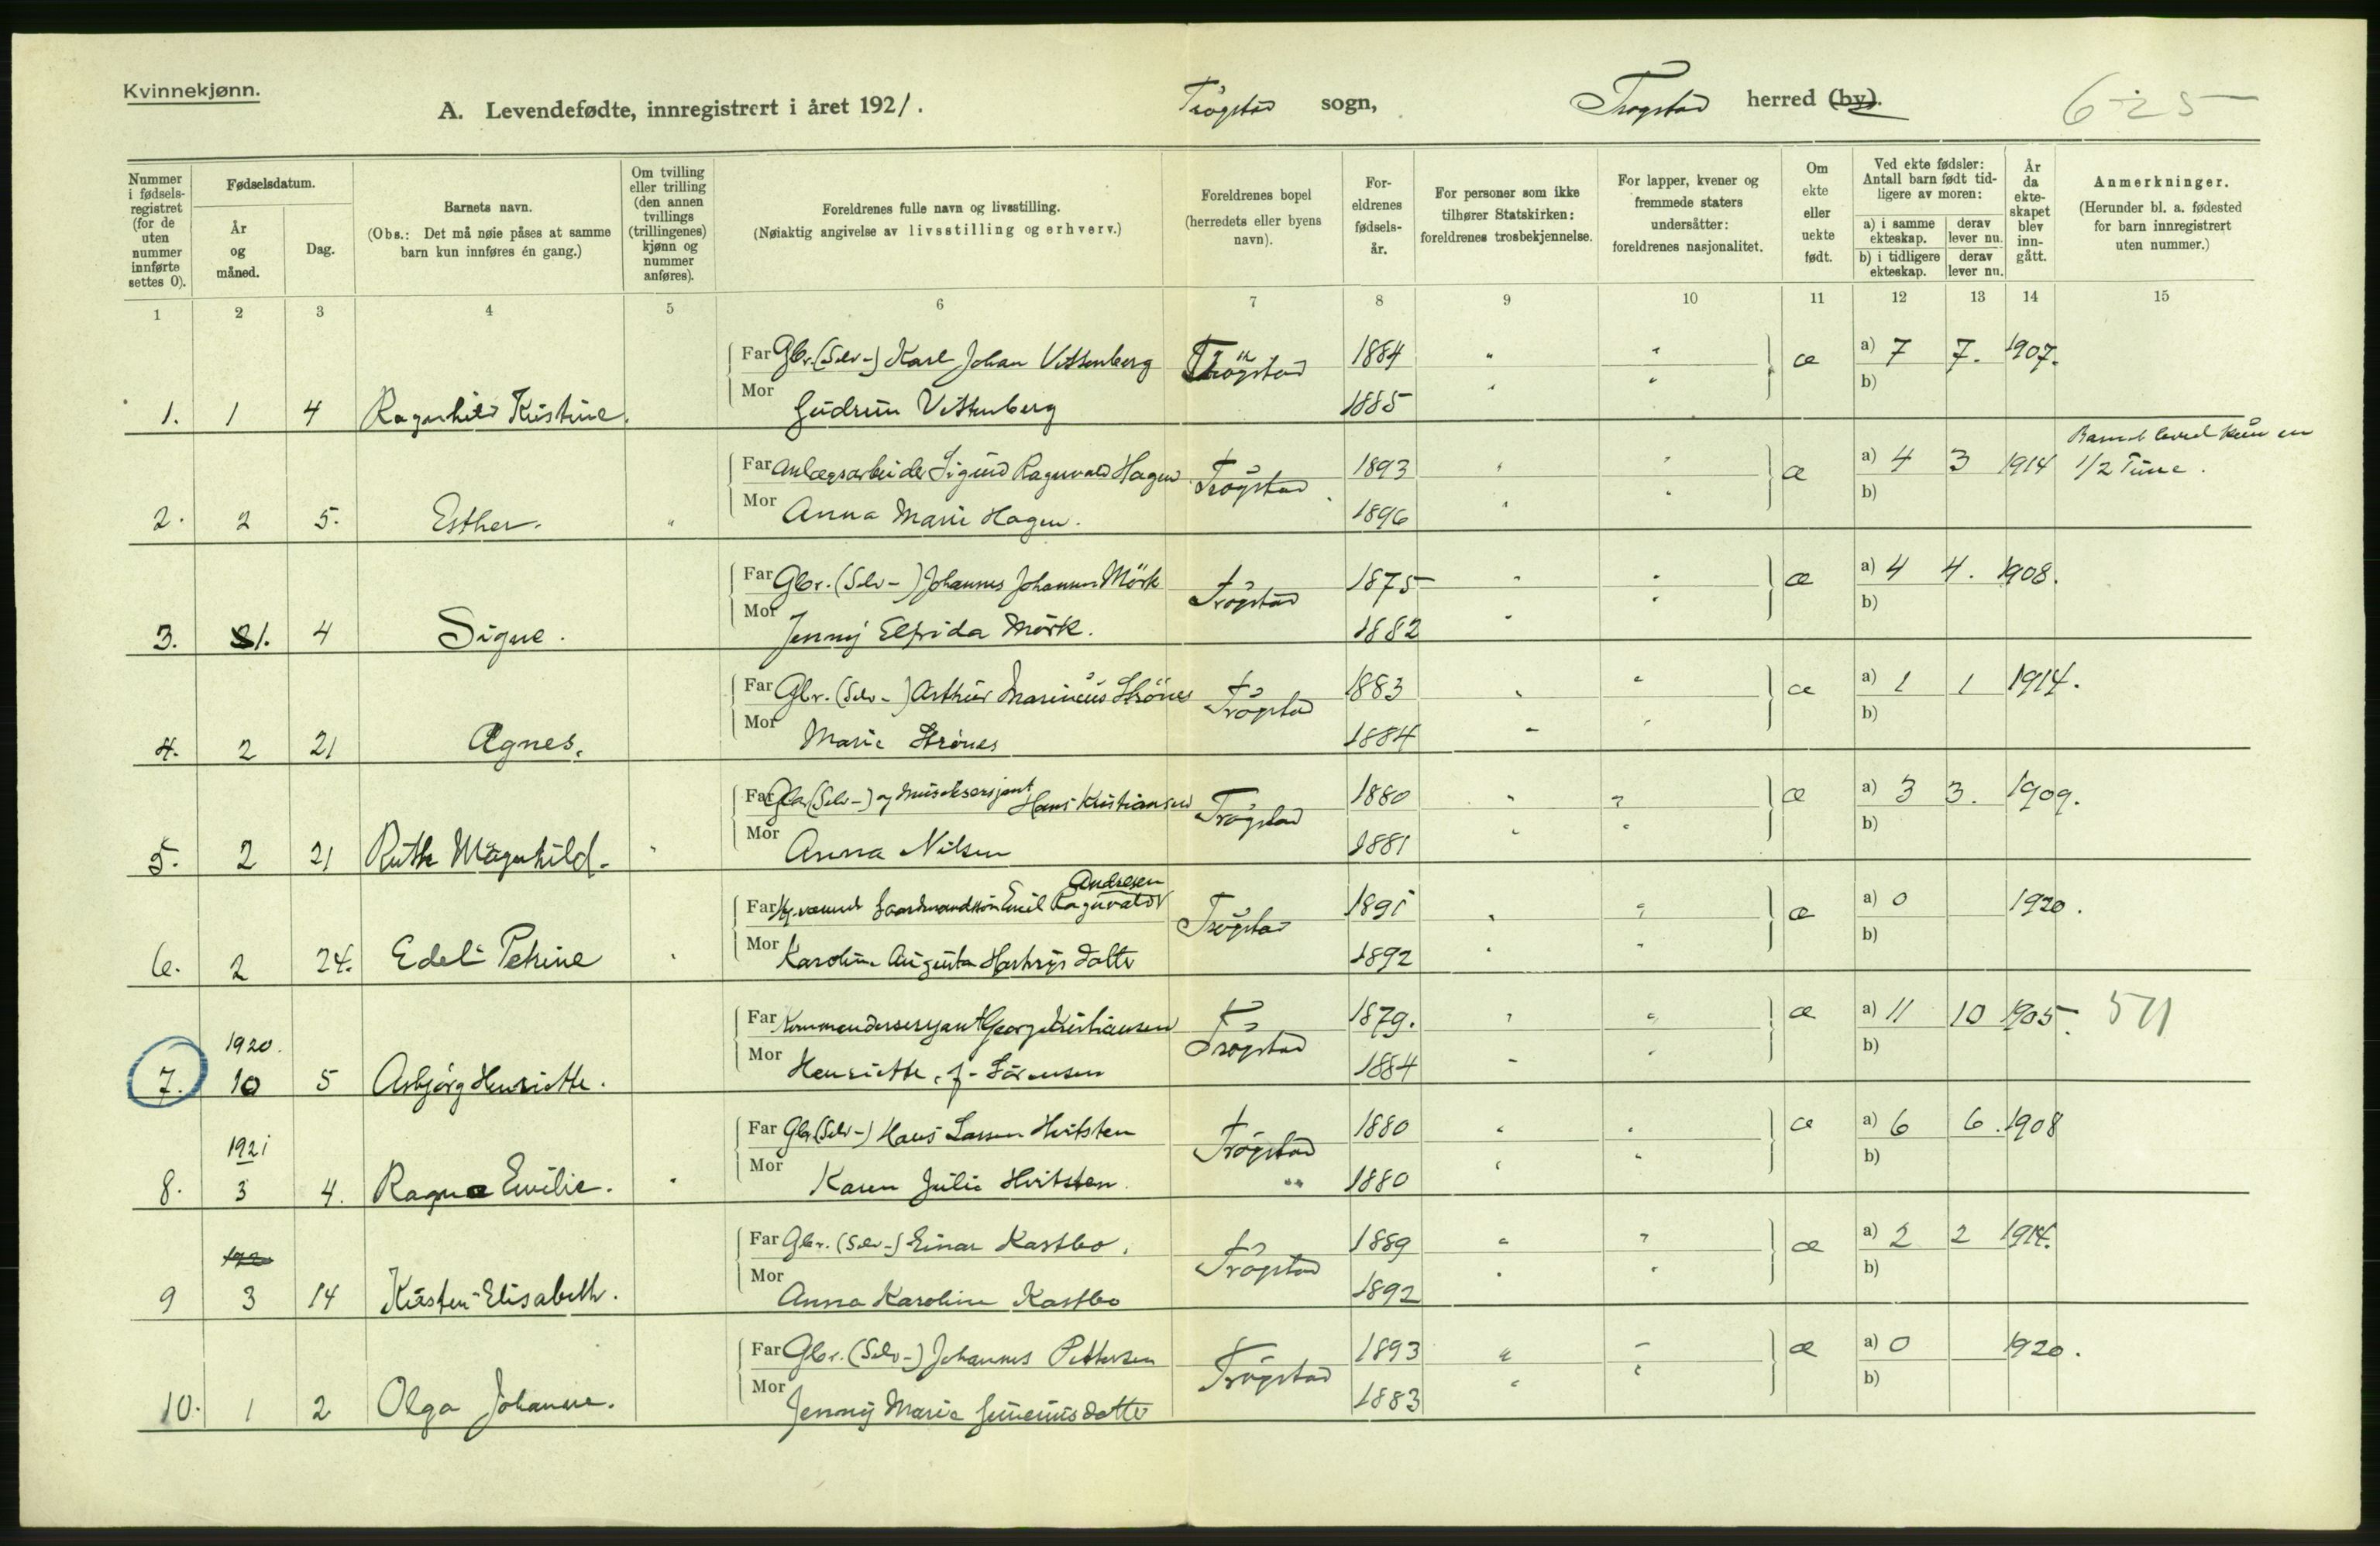 Kvinnekjønn.
A. Levendefødte, innregistrert i året 1921. Trøgstad sogn, Trøgstad herred (by). 625
Nummer i fødselsregistret (for de uten nummer innførte settes 0).
Fødselsdatum.
År og måned.
Dag.
Barnets navn.
(Obs.: Det må nøie påses at samme barn kun innføres én gang.)
Om tvilling eller trilling (den annen tvillings (trillingenes) kjønn og nummer anføres).
Foreldrenes fulle navn og livsstilling.
(Nøiaktig angivelse av livsstilling og erhverv.)
Foreldrenes bopel (herredets eller byens navn).
Foreldrenes fødselsår.
For personer som ikke tilhører Statskirken: foreldrenes trosbekjennelse.
For lapper, kvener og fremmede staters undersåtter: foreldrenes nasjonalitet.
Om ekte eller uekte født.
Ved ekte fødsler: Antall barn født tidligere av moren:
a) i samme ekteskap. derav lever nu.
b) i tidligere ekteskap. derav lever nu.
År da ekteskapet blev inngått.
Anmerkninger.
(Herunder bl. a. fødested for barn innregistrert uten nummer.)
1 2 3 4 5 6 7 8 9 10 11 12 13 14 15
Far Gbr. (Selv-) Karl Johan Vittenberg Trøgstad 1884 " " æ a) 7 7. 1907.
Mor Gudrun Vittenberg 1885 " " b)
1. 1 4 Ragnhild Kristine.
Far Anlægsarbeider Sigurd Ragnvald Hagen Trögstad 1893 " " æ a) 4 3 1914 Barnet levet kun en 1/2 Time.
Mor Anna Marie Hagen. 1896 " " b)
2. 2 5. Esther. "
Far Gbr. (Selv-) Johannes Johannes Mörk Trögstad 1875 " " æ a) 4 4. 1908.
Mor Jenny Elfrida Mörk. 1882 " " b)
3. 1. 4 Signe.
Far Gbr. (Selv-) Arthur Marinius Strönes Trögstad 1883 " " æ a) 1 1 1914.
Mor Marie Strönes 1884 " " b)
4. 2 21 Agnes.
Far Gbr (Selv-) og Musiksersjant Hans Kristiansen Trögstad 1880 " " æ a) 3 3. 1909.
Mor Anna Nilsen 1881 " " b)
5. 2 21 Ruth Magnhild. "
Far Emil Ragnvald Andresen Trögstad 1891 " " æ a) 0 1920.
Mor Karoline Augusta datter 1892 " " b)
6. 2 24. Edel Petrine "
Far Kommandersersjant Georg Kristiansen Trögstad 1879. " " æ a) 11 10 1905. 511
Mor Henriette, f. Sörensen 1884 " " b)
7. 1920. 10 5 Asbjörg Henriette.
Far Gbr (Selv-) Hans Larsen Hvitsten Trögstad 1880 " " æ a) 6 6. 1908
Mor Karen Julie Hvitsten. " 1880 " " b)
8. 1921 3 4. Ragna Emilie. "
Far Gbr. (Selv-) Einar Kastbo. Trögstad 1889 " " æ a) 2 2 1914.
Mor Anna Karoline Kastbo 1892 " " b)
9 3 14 Kirsten Elisabeth.
Far Gbr. (Selv-) Johannes Pettersen Trögstad 1893 " " æ a) 0 1920.
Mor Jenny Marie 1883 " " b)
10. 1 2 Olga Johanne.